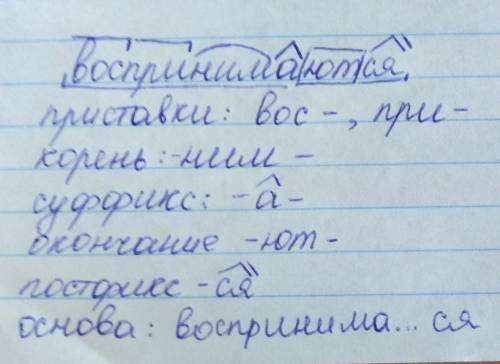 воспринимаются
приставки: вос-, при-
корень: -ним-
суффикс: -а-
окончание -ют-
постфикс -ся
основа: воспринима...ся